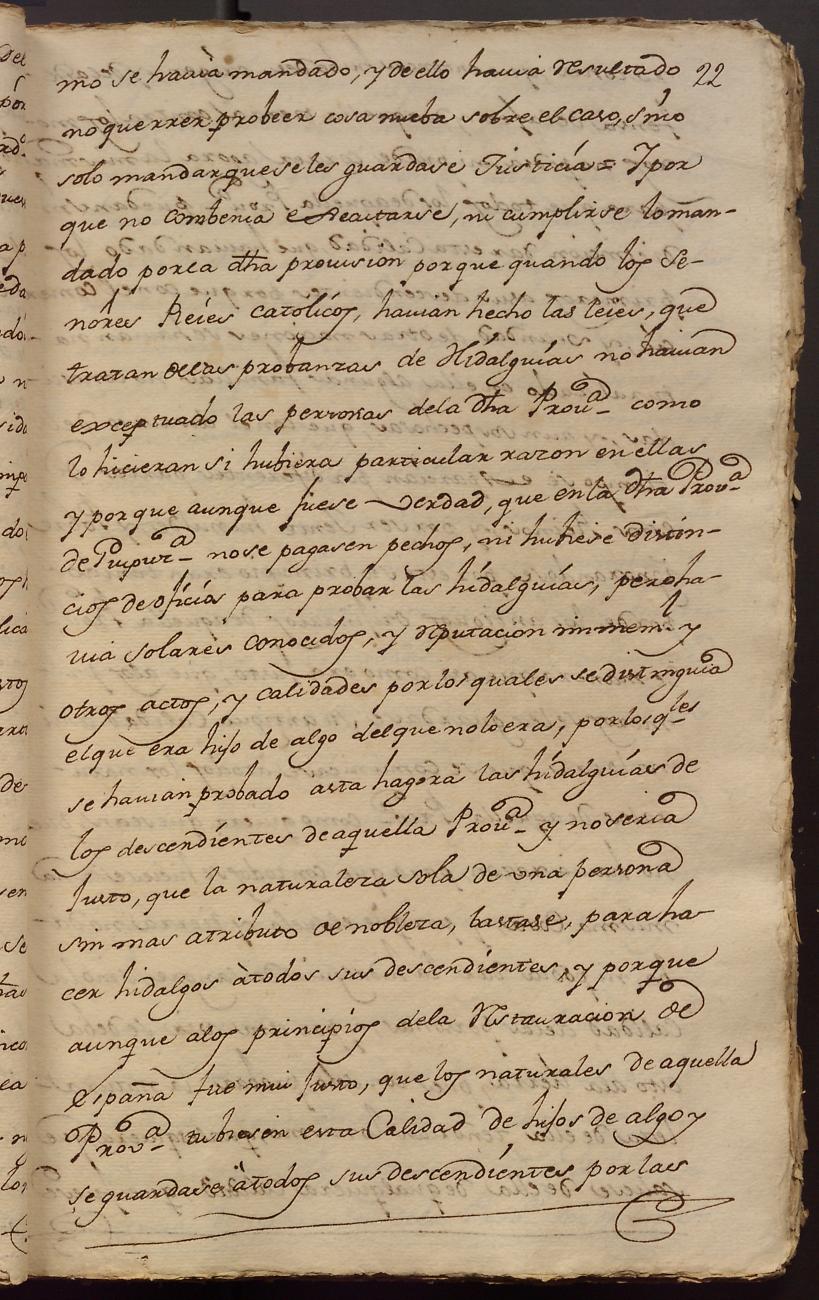 mo se havia mandado, y de ello havia resultado 22
no querrer probeer cosa nueba sobre el caso, sino
solo mandar que se les guardase Justicia = Y por
que no combenia executarse, ni cumplirse lo man-
dado por la dha provision porque quando los Se-
ñores Reies catolicos, havian hecho las leies, que
tratan de las probanzas de Hidalguias no havian
exceptuado las personas de la dha Prouᵃ como
lo hicieran si hubiera particular razon en ellas
y porque aunque fuese verdad, que en la dha Provᵃ
de Guipuzᵃ no se pagasen pechos, ni hubiese distin-
cios de oficios para probar las hidalguias, pero ha-
via solares conocidos, y reputacion inmeml y
otros actos, y calidades por los quales se distinguia
el que era hijo de algo del que no lo era, por los qles
se havian probado asta hagora las hidalguias de
los descendientes de aquella Prouᵃ y no seria
Justo, que la naturaleza sola de una persona
sin mas atributo de nobleza, bastase, para ha-
cer hidalgos à todos sus descendientes, y porque
aunque a los principios de la Restauracion de
España fue mui Justo, que los naturales de aquella
Provᵃ tubiesen esta Calidad de hijos de algo y
se guardase à todos sus descendientes por las